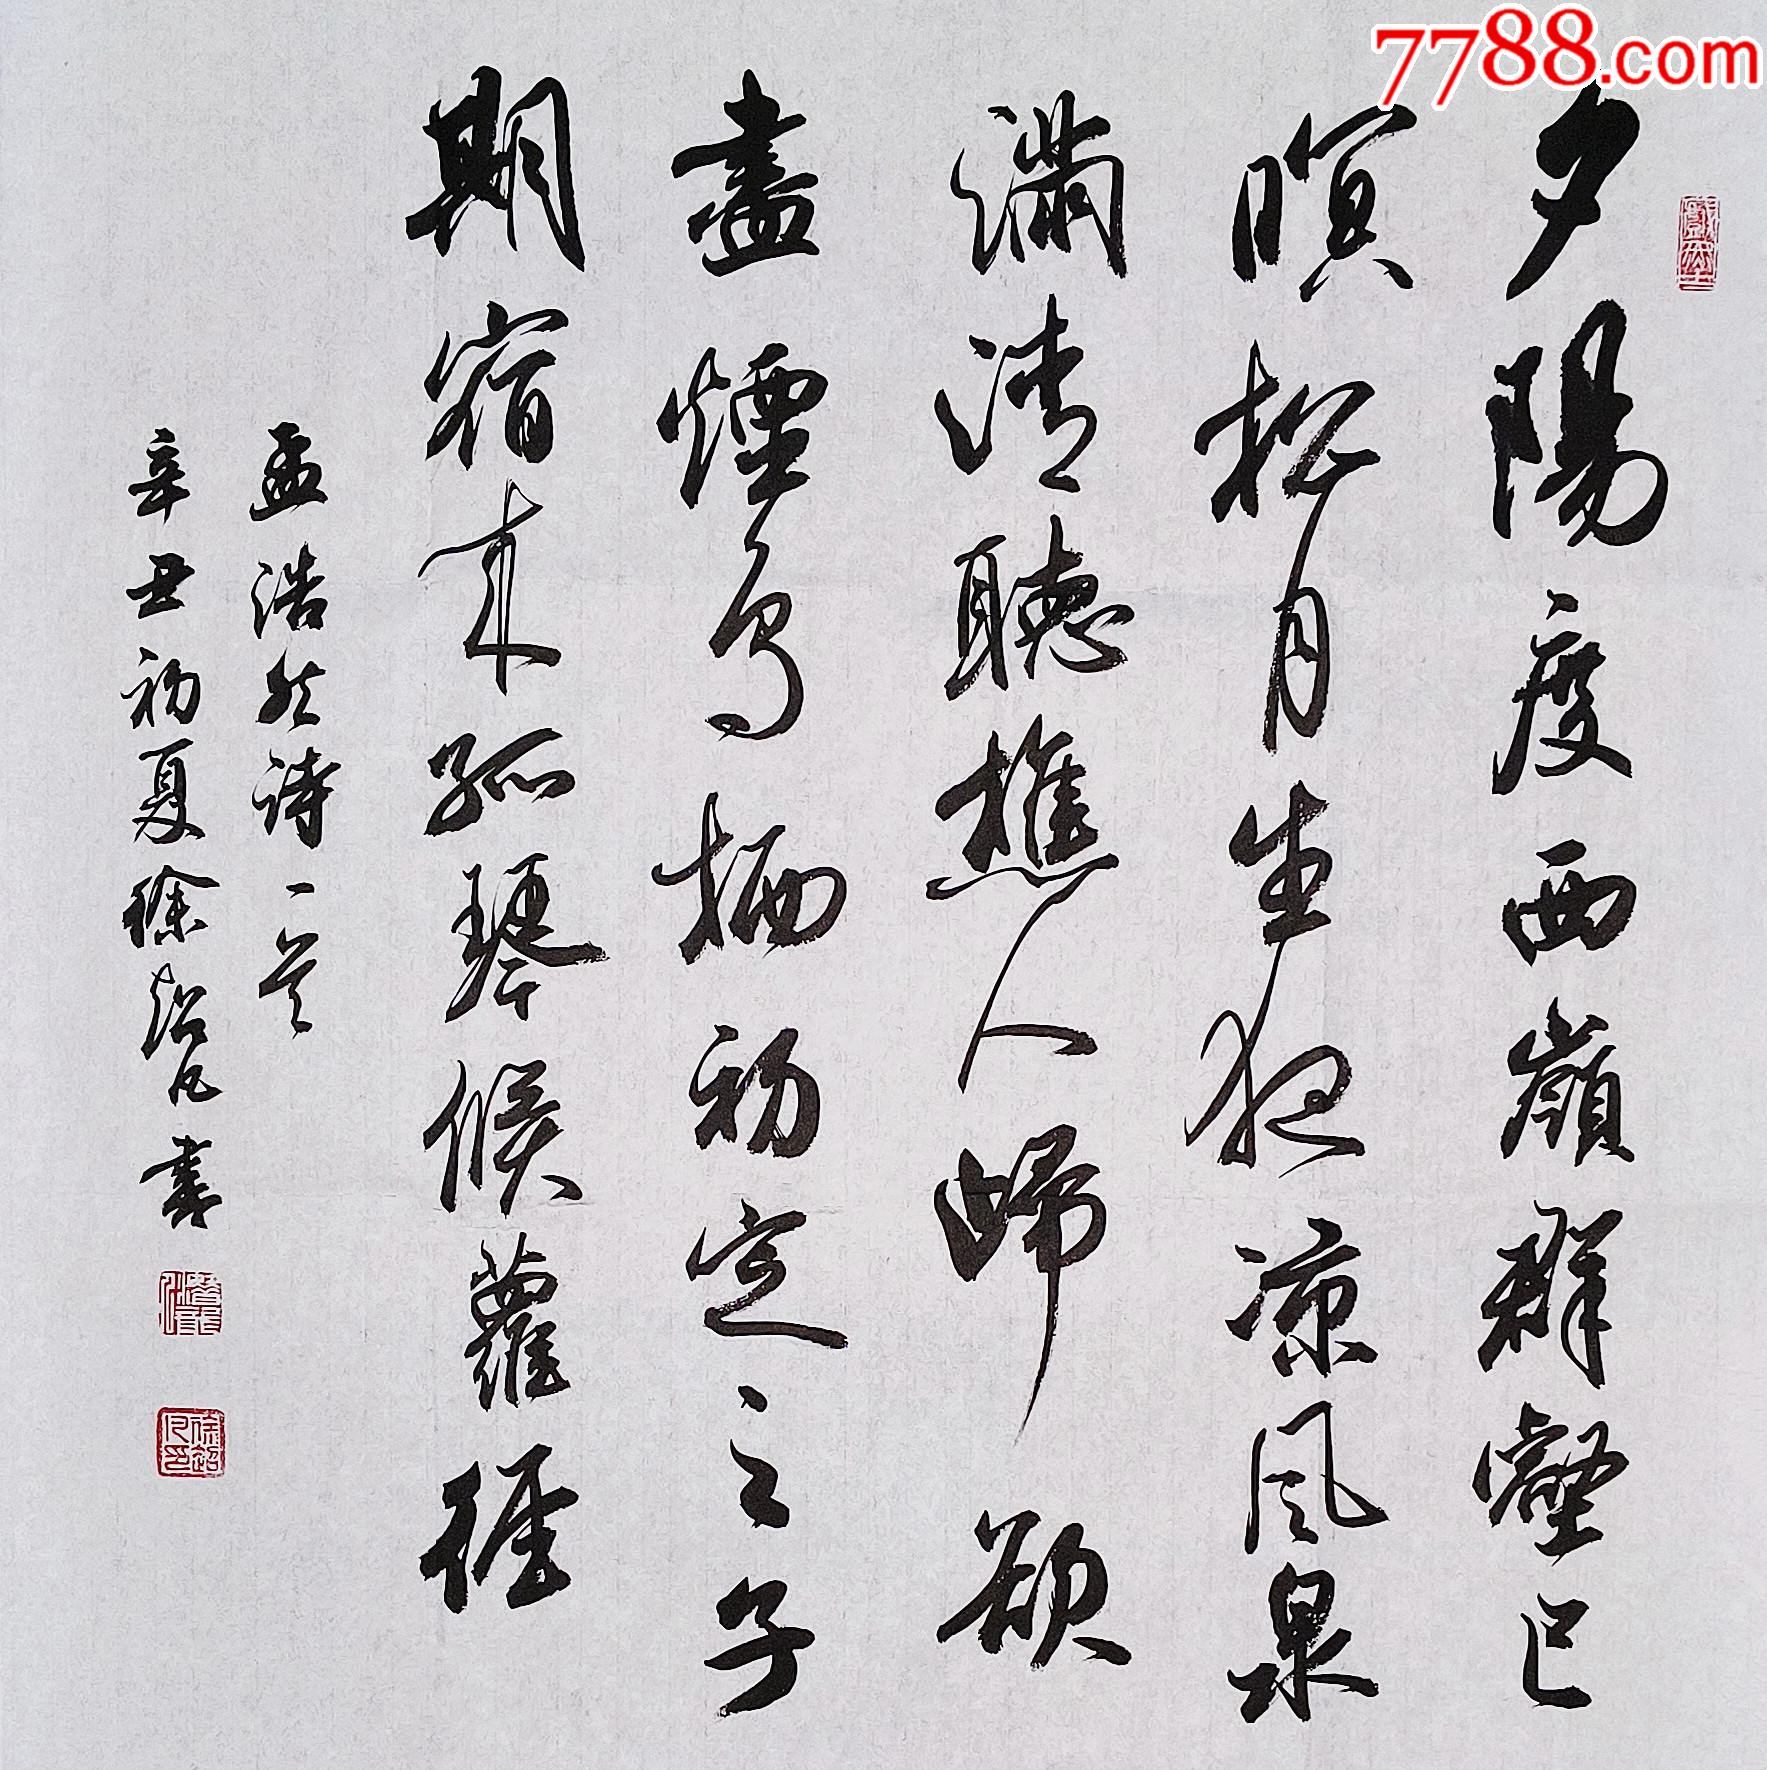 7788.com
夕陽度西嶺群壑已
暝松月生夜凉风泉
滿清聽樵人歸欲
盡煙鳥栖初定之子
期宿来孤琴候蘿徑
孟浩然诗一首
辛丑初夏徐超凡書
徐超凡印